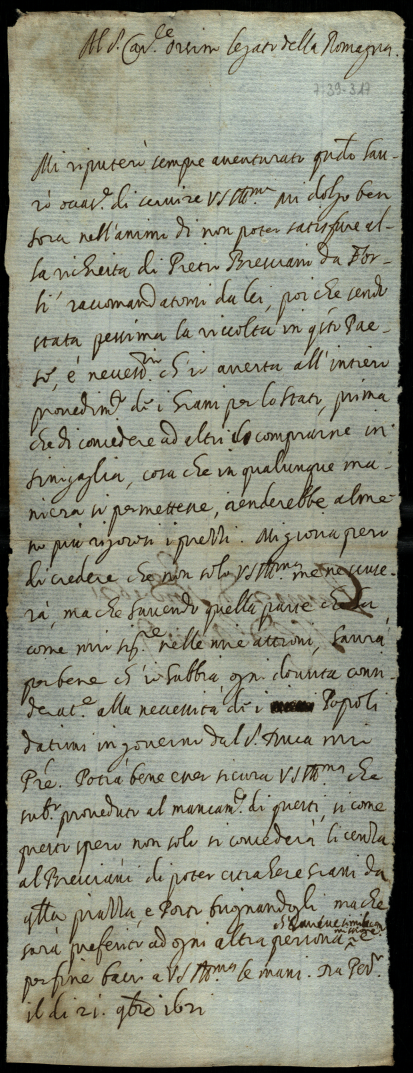 Al S.r Car.le Orsini legato della Romagna.
7:39-317
Mi riputerò sempre auenturato qn̄do hau-
rò occas.e di seruire VS Ill.ma mi dolgo ben
hora nell'animo di non poter satisfare al-
la richiesta di Pietro Bresciani da For-
lì raccomandatomi da lei, poiche sendo
stata pessima la riccolta in q̄sto Pae-
se, è necess.rio ch'io auerta all'intiero
prouedim.to de i Grani per lo Stato, prima
che di concedere ad altri comprarne in
Sinigaglia, cosa che in qualunque ma-
niera si permettesse, renderebbe alme-
no più rigorosi i prezzi. Mi gioua però
di credere che non solo VS Ill.ma me ne scuse-
rà, ma che hauendo quella parte che hà
come mio sig.re nelle mie attioni, haurà
per bene ch'io habbia ogni douuta consi-
derat.e alla necessità de i Popoli
datimi in gouerno dal S. Duca mio
Pre. Potrà bene esser sicura VS Ill.ma che
sub.to proueduto al mancam.to di questi, si come
questo spero non solo si concederà licenza
al Bresciani di poter estrahere Grani da
q̄lla piazza e Porto bisognandogli ma che
sarà preferito ad ogni altra persona
per fine bacio a VS Ill.ma le mani. Da Pes.o
il dì 21. 9bre 1621